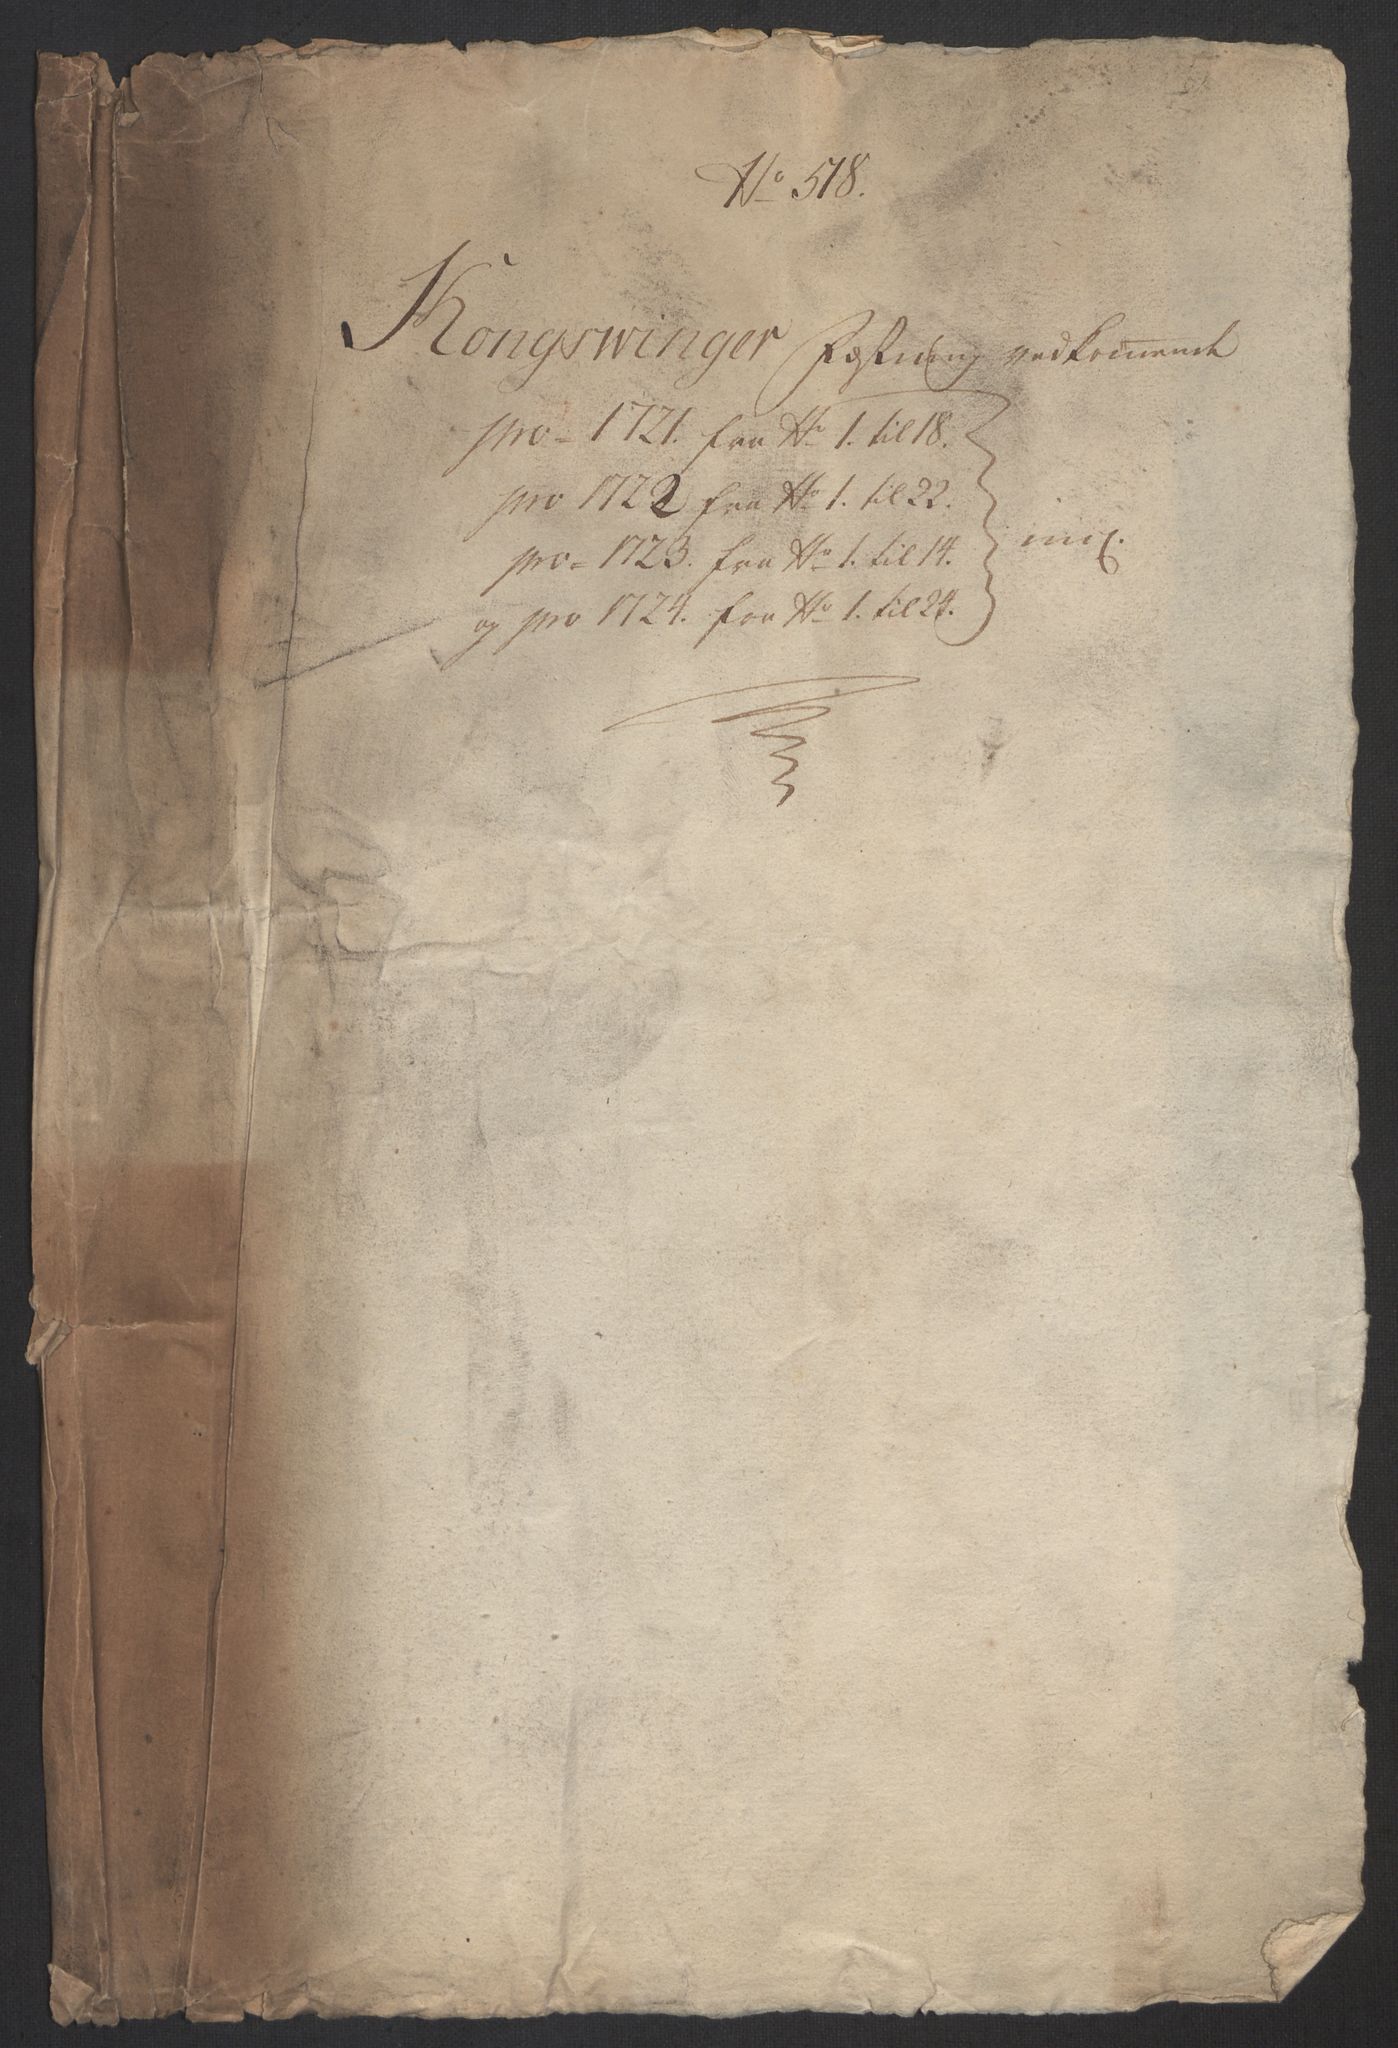 No 518.
Kongswinger Fæstning vedkommende
pro - 1721. fra No 1. til 18.
pro 1722 fra No 1. til 22.
pro - 1723. fra No 1. til 14.
og pro 1724. fra No 1. til 24.